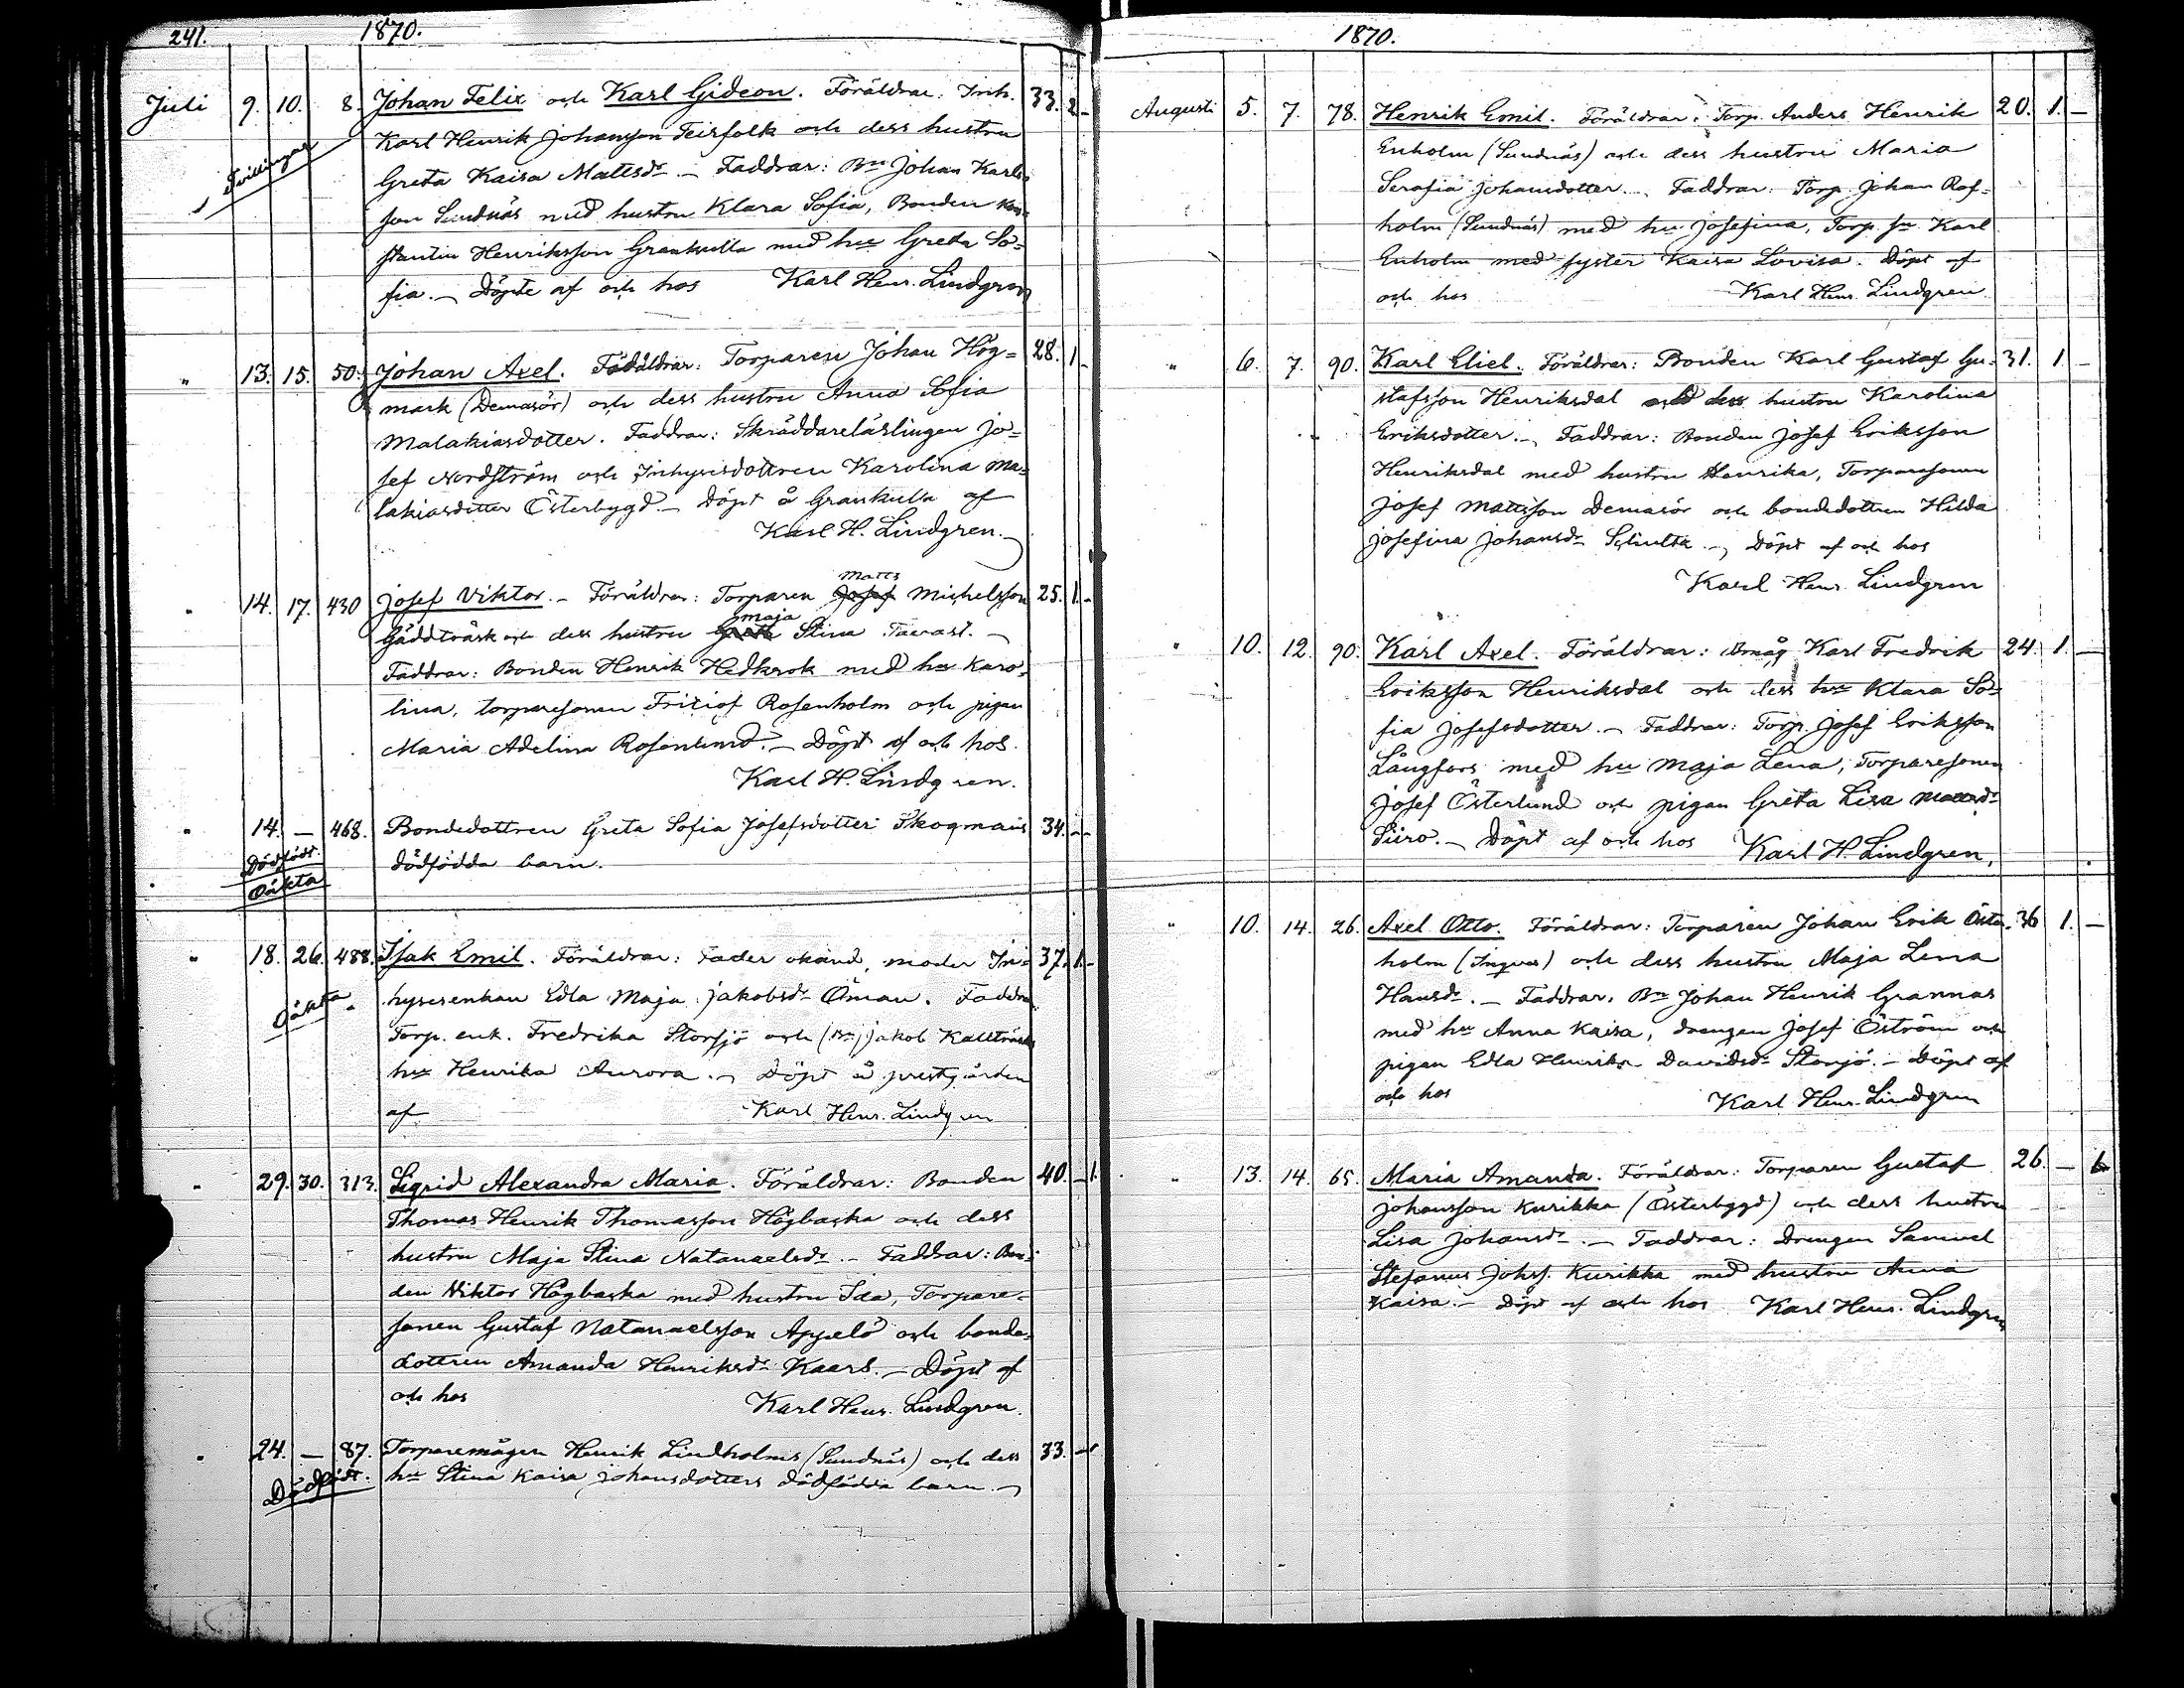 241. 1870.
Juli 9. 10. 8. Johan Felix och Karl Gideon. Föräldrar: Inh. 33. 2 -
Tvillingar Karl Henrik Johansson Teirfolk och dess hustru
Greta Kaisa Mattsdr. - Faddrar: Bn Johan Karls-
son Sundnäs med hustru Klara Sofia, Bonden Kon-
stantin Henriksson Grankulla med hu Greta So-
fia. - Döpte af och hos Karl Henr. Lindgren
" 13. 15. 50. Johan Axel. Föräldrar: Torparen Johan Hög= 28. 1 -
mark (Demasör) och dess hustru Anna Sofia
Malakiasdotter. Faddrar: Skräddarelärlingen Jo=
sef Nordström och Inhysesdottren Karolina Ma=
lakiasdotter Österbygd. - Döpt å Grankulla af
Karl H. Lindgren.
Matts
" 14. 17. 430 Josef Viktor. - Föräldrar: Torparen Josef Michelsson 25. 1. -
maja
Gäddträsk och dess hustru Greta Stina Tavast. -
Faddrar: Bonden Henrik Hedkrok med hu Karo-
lina, torparesonen Fritiof Rosenholm och pigan
Maria Adelina Rosenlund. - Döpt af och hos.
Karl H. Lindgren.
" 14. - 468. Bondedottren Greta Sofia Josefsdotter Skogmans 34. - -
Dödfödt. dödfödda barn.
Oäkta
" 18. 26. 488. Isak Emil. Föräldrar: Fader okänd, moder In= 37. 1. -
Oäkta. hysesenkan Edla Maja Jakobsdr Öman. Faddrar
Torp. enk. Fredrika Storsjö och (Bn) Jakob Kallträsks
hu Henrika Aurora. - Döpt å prestgården
af Karl Henr. Lindgren
" 29. 30. 313. Sigrid Alexandra Maria. Föräldrar: Bonden 40. - 1.
Thomas Henrik Thomasson Högbacka och dess
hustru Maja Stina Natanaelsdr. - Faddrar: Bon-
den Viktor Högbacka med hustru Ida, Torpare-
sonen Gustaf Natanaelsson Appelö och bonde-
dottren Amanda Henriksdr Kaars. - Döpt af
och hos Karl Henr. Lindgren.
" 24. - 87. Torparemågen Henrik Lindholms (Sundnäs) och dess 33. - -
Dödfödt. hu Stina Kaisa Johansdotters dödfödda barn. -
1870.
Augusti 5. 7. 78. Henrik Emil. Föräldrar: Torp. Anders Henrik 20. 1. -
Enholm (Sundnäs) och dess hustru Maria
Serafia Johansdotter. Faddrar: Torp. Johan Ros-
holm (Sundnäs) med hu Josefina, Torp. sn Karl
Enholm med syster Kaisa Lovisa. Döpt af
och hos Karl Henr. Lindgren.
" 6. 7. 90. Karl Eliel. Föräldrar: Bonden Karl Gustaf Gu- 31. 1. -
stafsson Henriksdal och dess hustru Karolina
Eriksdotter. - Faddrar: Bonden Josef Eriksson
Henriksdal med hustru Henrika, Torparesonen
Josef Mattsson Demasör och bondedottren Hilda
Josefina Johansdr - Döpt af och hos
Karl Henr. Lindgren
" 10. 12. 90. Karl Axel. Föräldrar: Bmåg Karl Fredrik 24. 1. -
Eriksson Henriksdal och dess hu Klara So-
fia Josefsdotter. - Faddrar: Torp. Josef Eriksson
Långfors med hu Maja Lena, Torparesonen
Josef Österlund och pigan Greta Lisa Mattsdr
Siiro. - Döpt af och hos Karl H. Lindgren.
" 10. 14. 26. Axel Otto. Föräldrar: Torparen Johan Erik Öster- 36 1. -
holm (Ingves) och dess hustru Maja Lena
Hansdr. - Faddrar: Bn Johan Henrik Grannas
med hu Anna Kaisa, drengen Josef Öström och
pigan Edla Henrika Davidsdr Storsjö. - Döpt af
och hos Karl Henr. Lindgren
" 13. 14. 65. Maria Amanda. Föräldrar: Torparen Gustaf 26. - 1.
Johansson Kurikka (Österbygd) och dess hustru
Lisa Johansdr. - Faddrar: Drengen Samuel
Stefanus Johss. Kurikka med hustru Anna
Kaisa. - Döpt af och hos Karl Henr. Lindgren